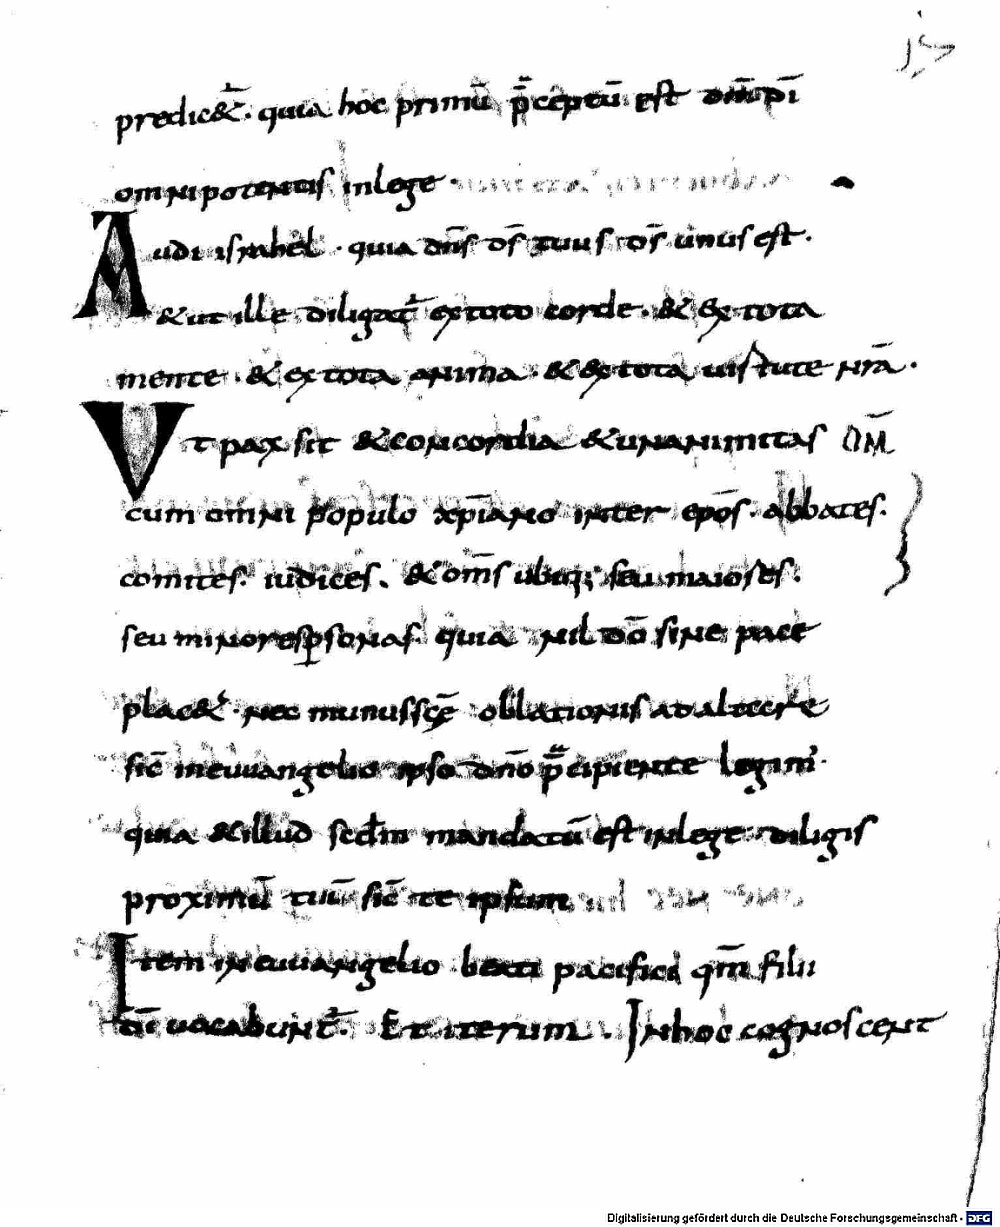 predic&̄. quia hoc primū p̄ceptū est dn̄i dī
omnipotentis inlege.
Audi israhel. quia dn̄s ds̄ tuus ds̄ unus est.
& ut ille diligat̄ extoto corde. & ex tota
mente. & extota anima. & extota uirtute nr̄a.
Ut pax sit &concordia &unanimitas OM̄
cum omni populo xp̄iano inter ep̄os. abbates.
comites. iudices. & om̄s ubiq; seu maiores.
seu minores psonas quia nil dō sine pace
plac&. nec munus sc̄ę oblationis ad altare
sic̄ ineuuangelio ipso dn̄o p̄cipiente legim'.
quia &illud scdm mandatū est inlege. diligis
proximū tuū sic̄ te ipsum
Item ineuuangelio beati pacifici qm̄ filii
dī uocabunt̄. Et iterum. Inhoc cognoscent
Digitalisierung gefördert durch die Deutsche Forschungsgemeinschaft - DFG